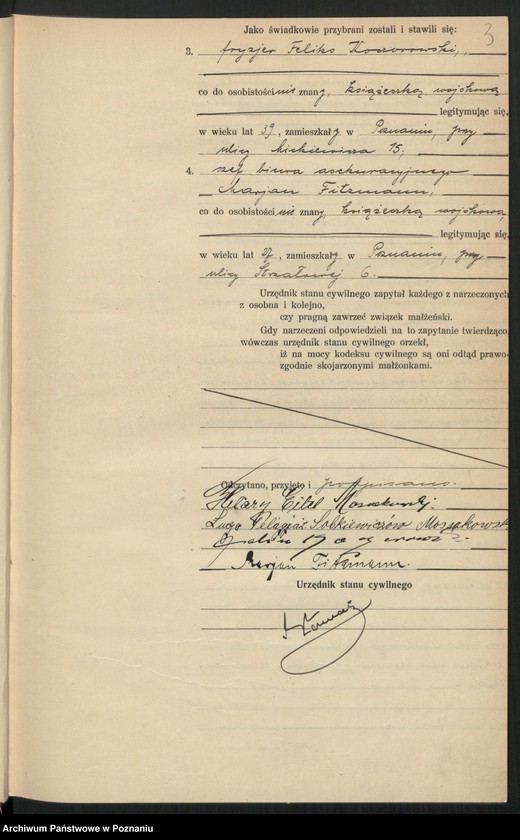 3
Jako świadkowie przybrani zostali i stawili się:
3. fryzjer Feliks
co do osobistości nie znany, książeczką wojskową
legitymując się,
w wieku lat 39, zamieszkały w Poznaniu, przy
ulicy Mickiewicza 15;
4. szef biura asekuracyjnego
Marjan Fitzmann,
co do osobistości nie znany, książeczką wojskową
legitymując się,
w wieku lat, zamieszkały w Poznaniu, przy
ulicy Strzałowej 6.
Urzędnik stanu cywilnego zapytał każdego z narzeczonych
z osobna i kolejno,
czy pragną zawrzeć związek małżeński.
Gdy narzeczeni odpowiedzieli na to zapytanie twierdząco,
wówczas urzędnik stanu cywilnego orzekł,
iż na mocy kodeksu cywilnego są oni odtąd prawo-
zgodnie skojarzonymi małżonkami.
Odczytano, przyjęto i podpisano.
Hilary Eitel
Marjan Fitzmann.
Urzędnik stanu cywilnego
Archiwum Państwowe w Poznaniu